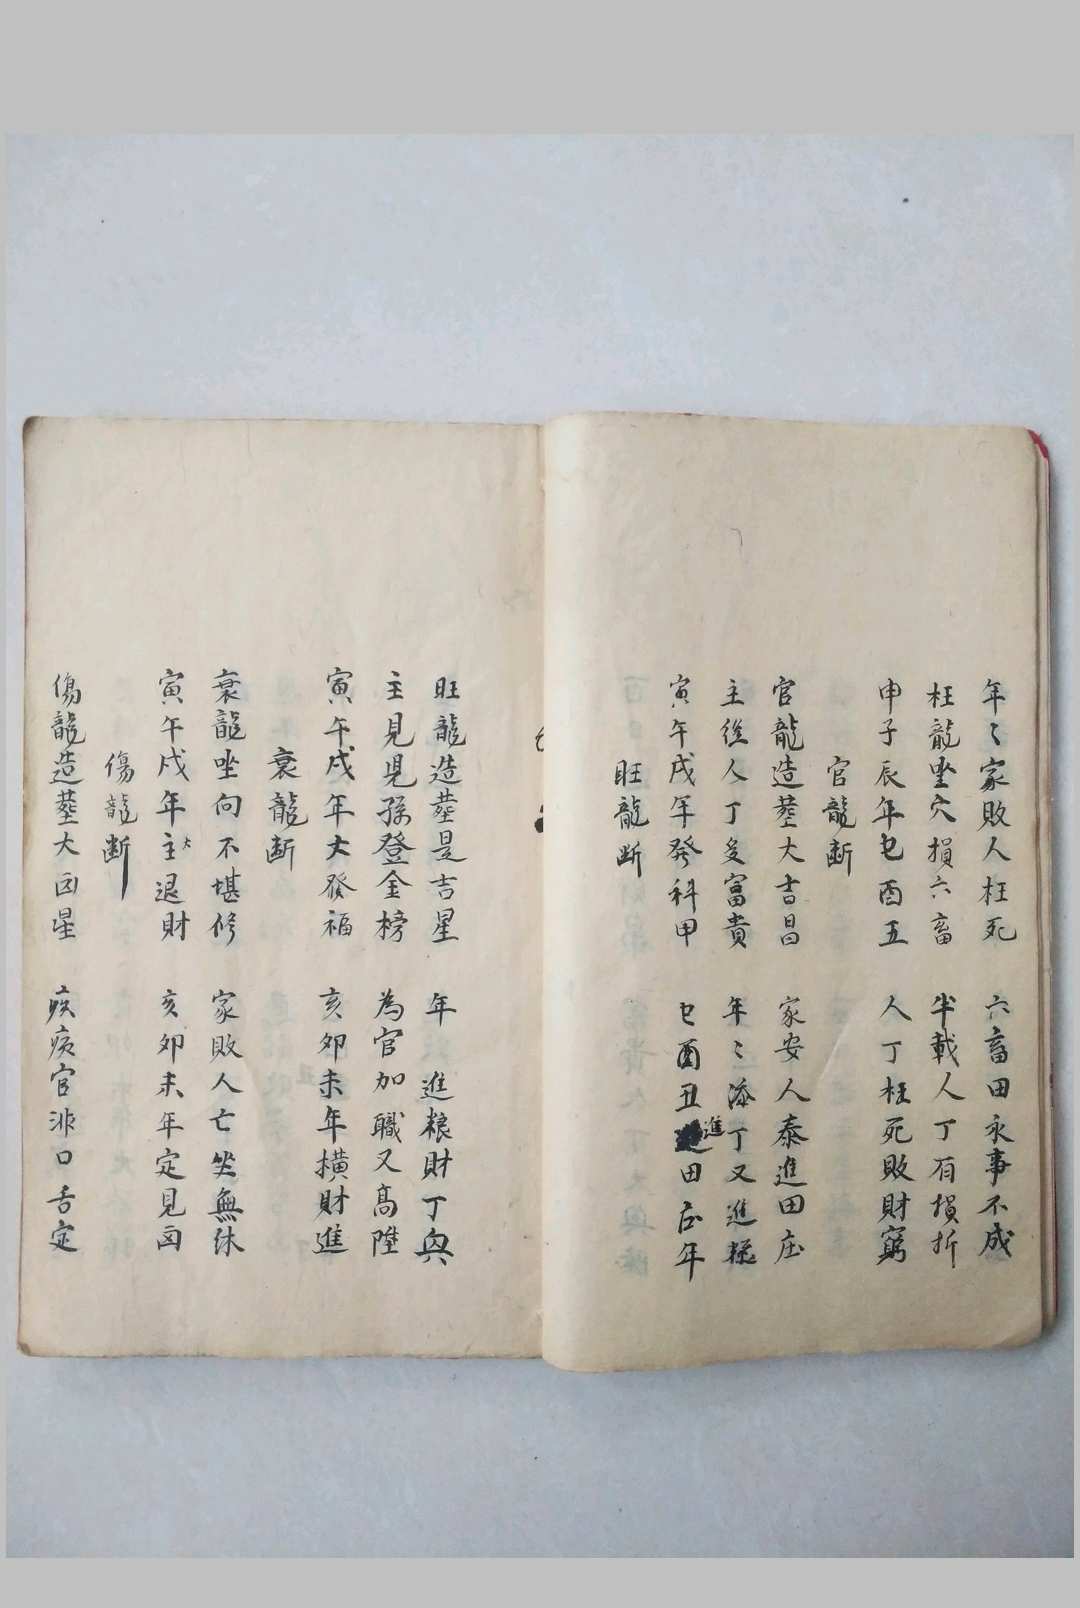 年〻家敗人枉死 六畜田永事不成
枉龍坐穴損六畜 半載人丁有損折
申子辰年巳酉五 人丁枉死敗財窮
官龍斷
官龍造塟大吉昌 家安人泰進田庄
主後人丁多富貴 年〻添丁又進粮
寅午戌年發科甲 巳酉丑進田庄年
旺龍斷
旺龍造塟是吉星 年進粮財丁興
主見児孫登金榜 為官加職又高陞
寅午戌年大發福 亥卯未年横財進
衰龍斷
衰龍坐向不堪修 家敗人亡坐無休
寅午戌年主大退財 亥卯未年定見凶
傷龍斷
傷龍造塟大凶星 疾病官非口舌定